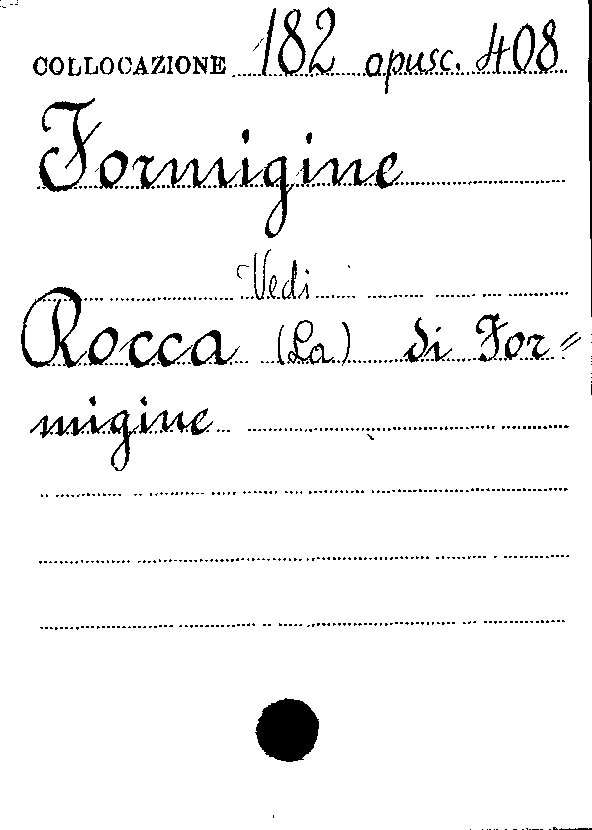 COLLOCAZIONE 182 opusc. 408
Formigine
Vedi
Rocca (La) di For=
migine